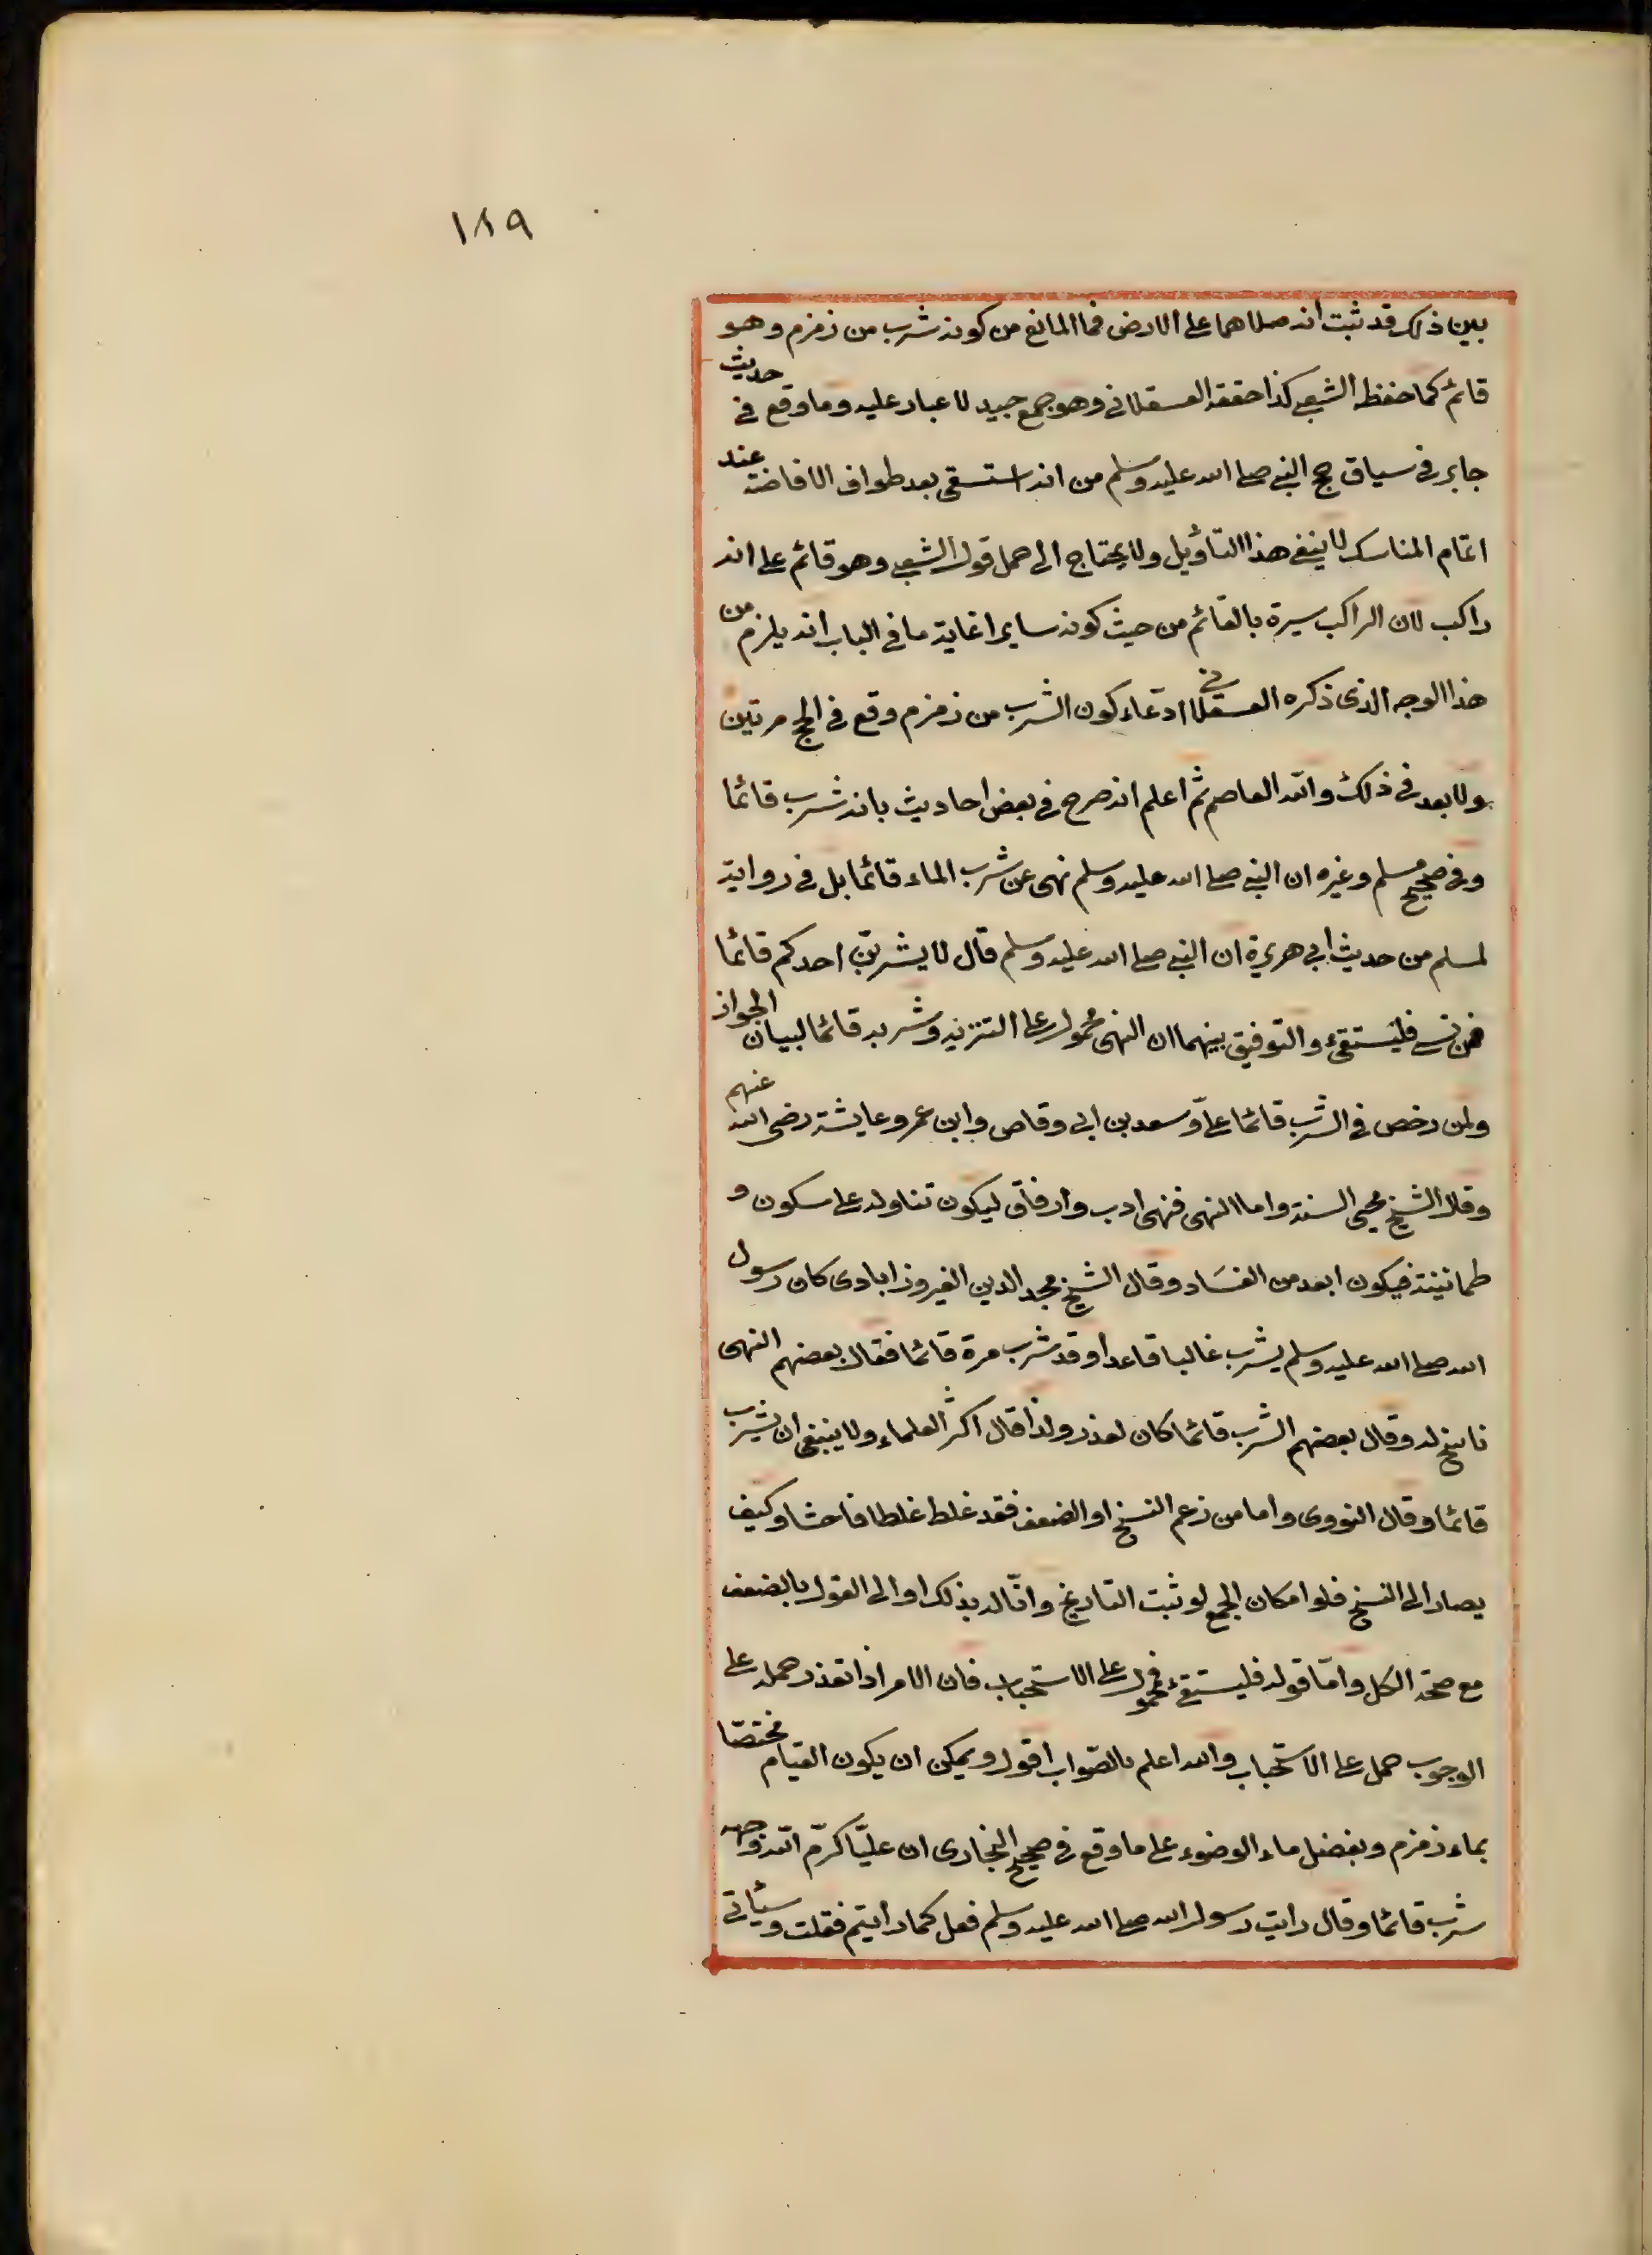 ١٨٩
بين ذلك قد ثبت انه صلاهما على الارض فما المانع من كونه شرب من زمزم وهو
قائم كما حفظ الشعبى كذا حققه العسقلانى وهو جمع جيد لا غبار عليه وما وقع فى حديث
جابر فى سياق حج النبى صلى الله عليه وسلم من انه استسقى بعد طواف الافاضة عند
اتمام المناسك لا ينفى هذا التأويل ولا يحتاج الى حمل قول الشعبى وهو قائم على انه
راكب لان الراكب سيرة بالقائم من حيث كونه سايرا غاية ما فى الباب انه يلزم من
هذا الوجه الذى ذكره العسقلانى ادعاء كون الشرب من زمزم وقع فى الحج مرتين
ولا بعد فى ذلك والله العاصم ثم اعلم انه صرح فى بعض احاديث بانه شرب قائما
وفى صحيح مسلم وغيره ان النبى صلى الله عليه وسلم نهى عن شرب الماء قائما بل فى رواية
لمسلم من حديث ابى هريرة ان النبى صلى الله عليه وسلم قال لا يشربن احدكم قائما
فمن نسى فليستقئ والتوفيق بينهما ان النهى محمول على التنزيه وشربه قائما لبيان الجواز
ولمن رخص فى الشرب قائما على وسعد بن ابى وقاص وابن عمر وعايشة رضى الله عنهم
وقال الشيخ محيى السنة واما النهى فنهى ادب وارفاق ليكون تناوله على سكون و
طمانينة فيكون ابعد من الفساد وقال الشيخ مجد الدين الفيروزابادى كان رسول
الله صلى الله عليه وسلم يشرب غالبا قاعدا وقد شرب مرة قائما فقال بعضهم النهى
ناسخ له وقال بعضهم الشرب قائما كان لعذر ولذا قال اكثر العلماء ولا ينبغى ان يشرب
قائما وقال النووى واما من زعم النسخ او الضعف فقد غلط غلطا فاحشا وكيف
يصار الى النسخ فلو امكان الجمع لو ثبت التاريخ وانى له بذلك او الى القول بالضعف
مع صحة الكل واما قوله فليستقئ فمحمول على الاستحباب فان الامر اذا تعذر حمله على
الوجوب حمل على الاستحباب والله اعلم بالصواب اقول ويمكن ان يكون القيام مختصا
بماء زمزم وبفضل ماء الوضوء على ما وقع فى صحيح البخارى ان عليا كرم الله وجهه
شرب قائما وقال رايت رسول الله صلى الله عليه وسلم فعل كما رايتم فعلت وسيأتى